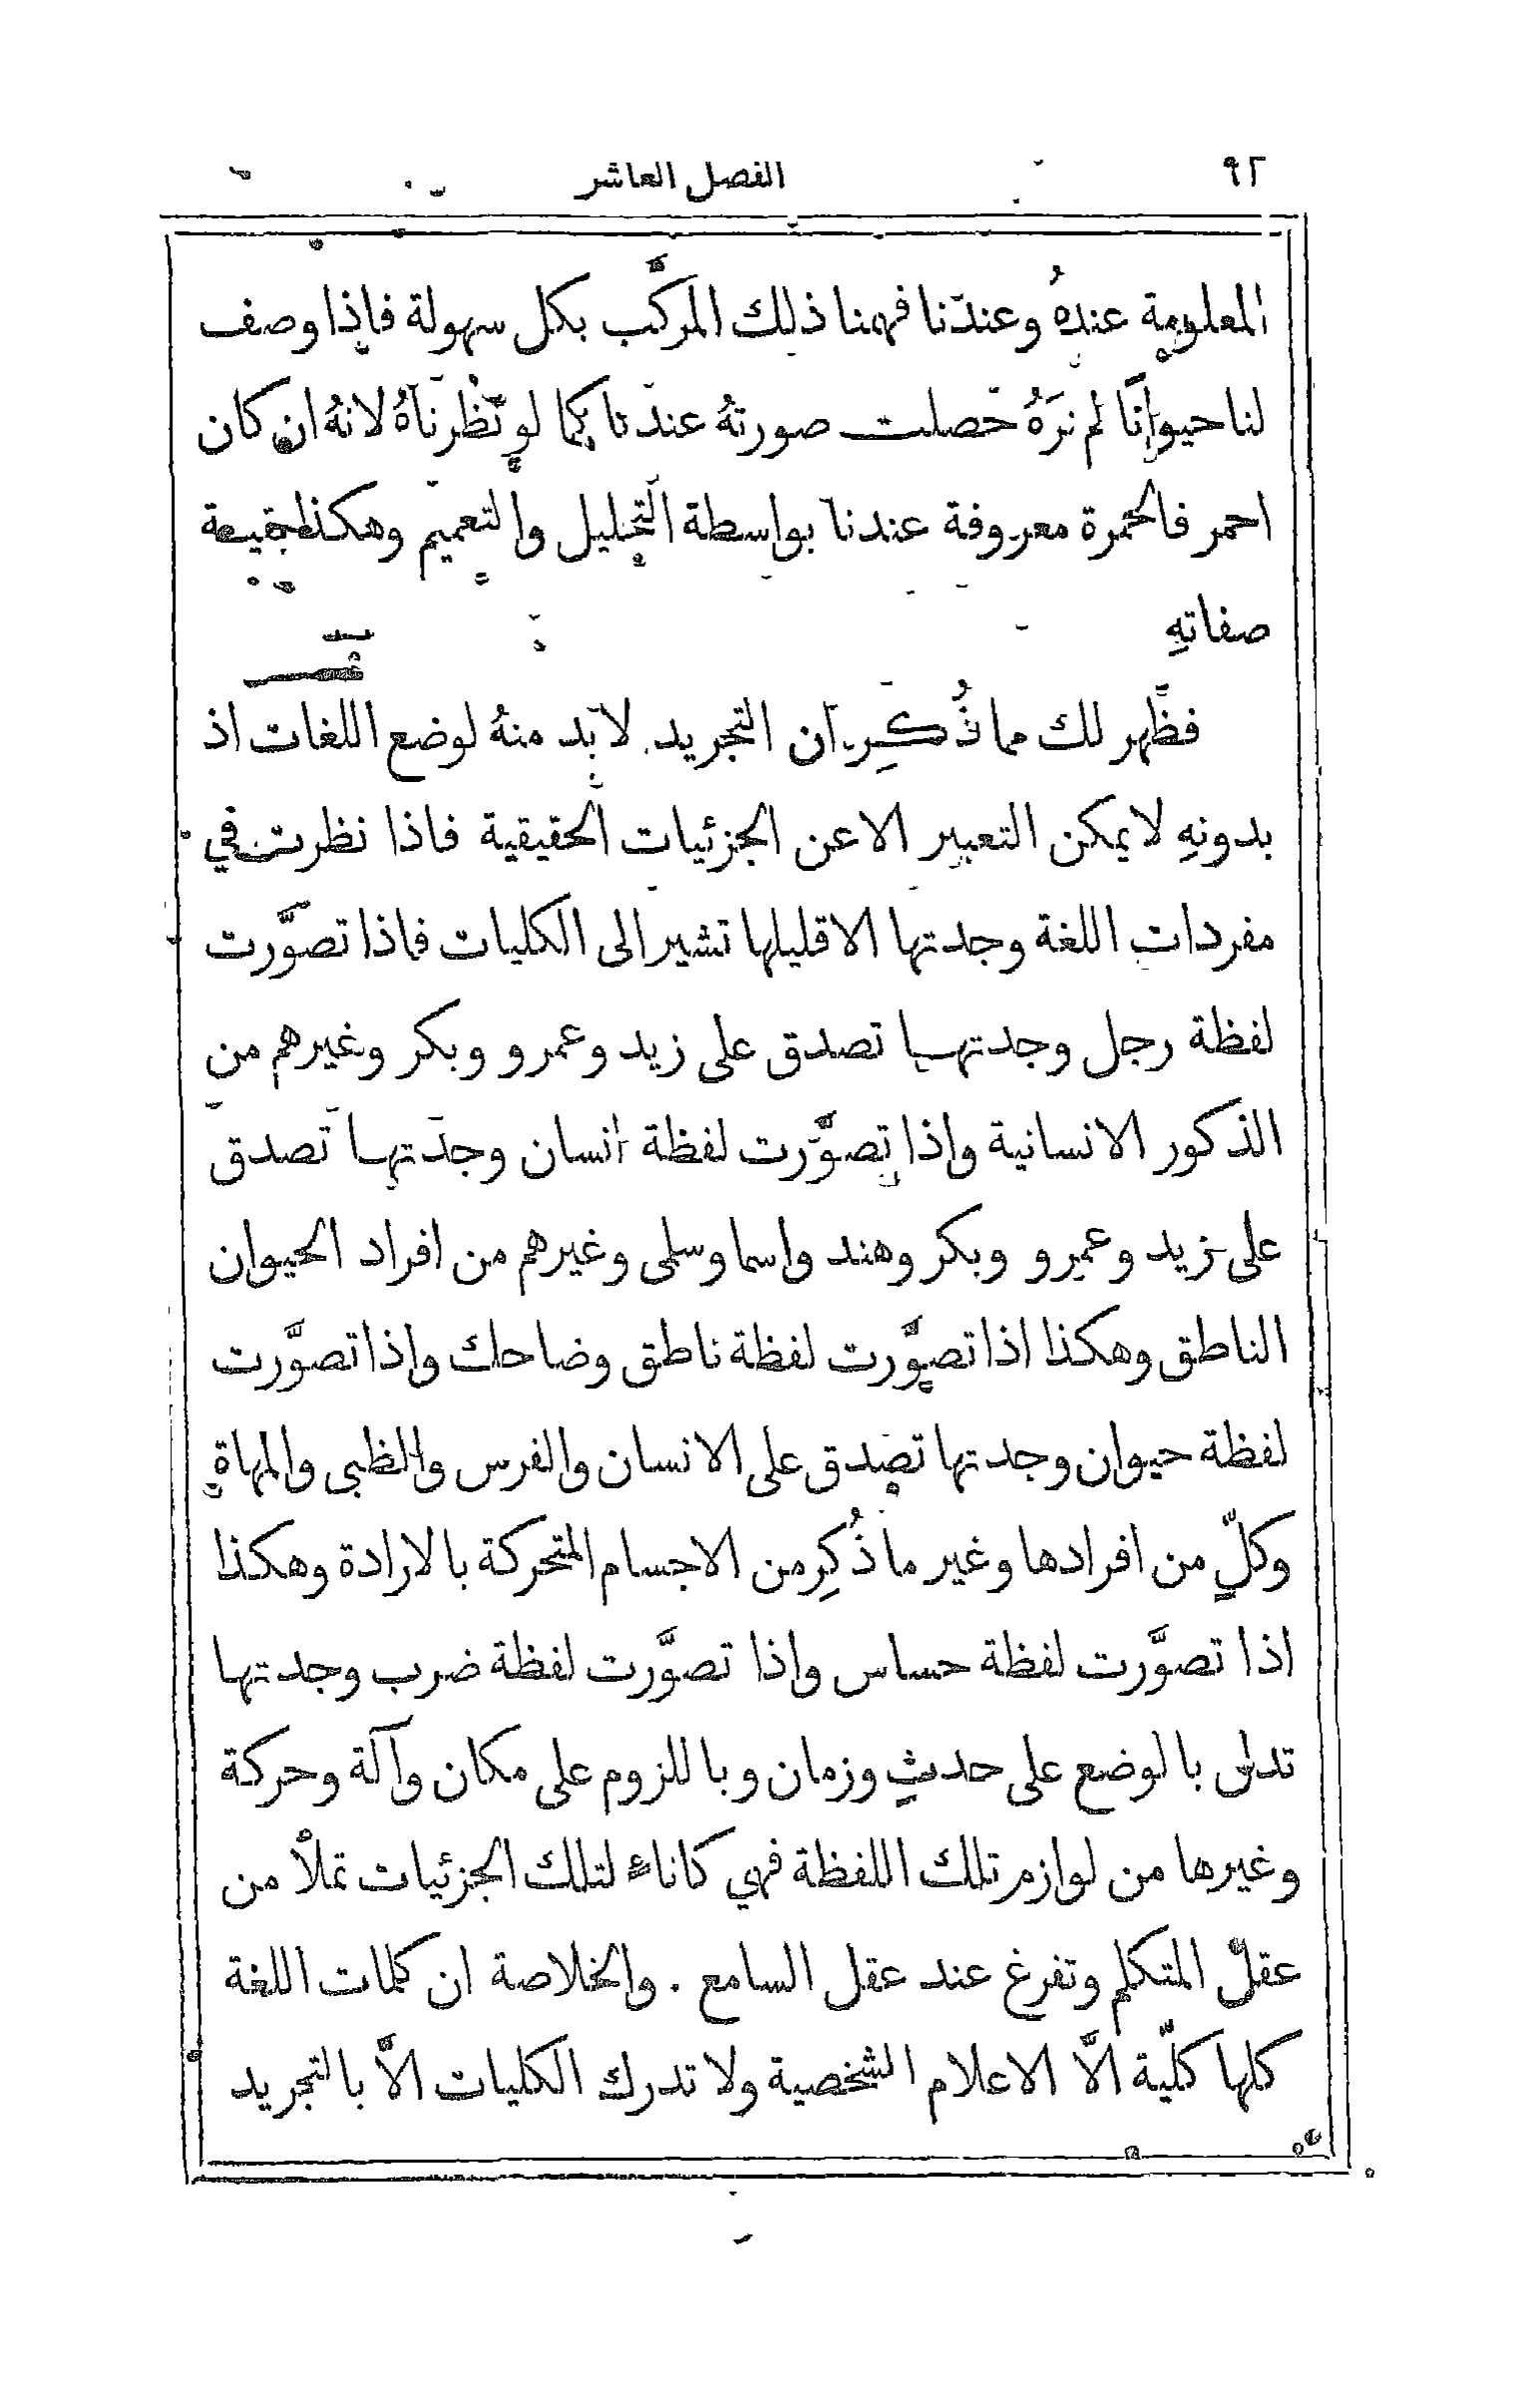 ٩٢ الفصل العاشر
المعلومة عندهُ وعندنا فهمنا ذلك المركَّب بكل سهولة فاذا وصف
لنا حيوانًا لم نرَهُ حصلت صورتهُ عندنا كما لو نظرناهُ لانهُ ان كان
احمر فالحمرة معروفة عندنا بواسطة التحليل والتعميم وهكذا بقيعة
صفاتهِ
فظهر لك مما ذُكِر ان التجريد لا بد منهُ لوضع اللغات اذ
بدونهِ لا يمكن التعبير الا عن الجزئيات الحقيقية فاذا نظرت في
مفردات اللغة وجدتها الا قليلها تشير الى الكليات فاذا تصوَّرت
لفظة رجل وجدتها تصدق على زيد وعمرو وبكر وغيرهم من
الذكور الانسانية واذا تصوَّرت لفظة انسان وجدتها تصدق
على زيد وعمرو وبكر وهند واسما وسلمى وغيرهم من افراد الحيوان
الناطق وهكذا اذا تصوَّرت لفظة ناطق وضاحك واذا تصوَّرت
لفظة حيوان وجدتها تصدق على الانسان والفرس والظبي والمهاة
وكلٍّ من افرادها وغير ما ذُكِر من الاجسام المتحركة بالارادة وهكذا
اذا تصوَّرت لفظة حساس واذا تصوَّرت لفظة ضرب وجدتها
تدل بالوضع على حدثٍ وزمان وباللزوم على مكان وآلة وحركة
وغيرها من لوازم تلك اللفظة فهي كاناءٍ لتلك الجزئيات تملأ من
عقل المتكلم وتفرغ عند عقل السامع . والخلاصة ان كلمات اللغة
كلها كلّية الَّا الاعلام الشخصية ولا تدرك الكليات الَّا بالتجريد